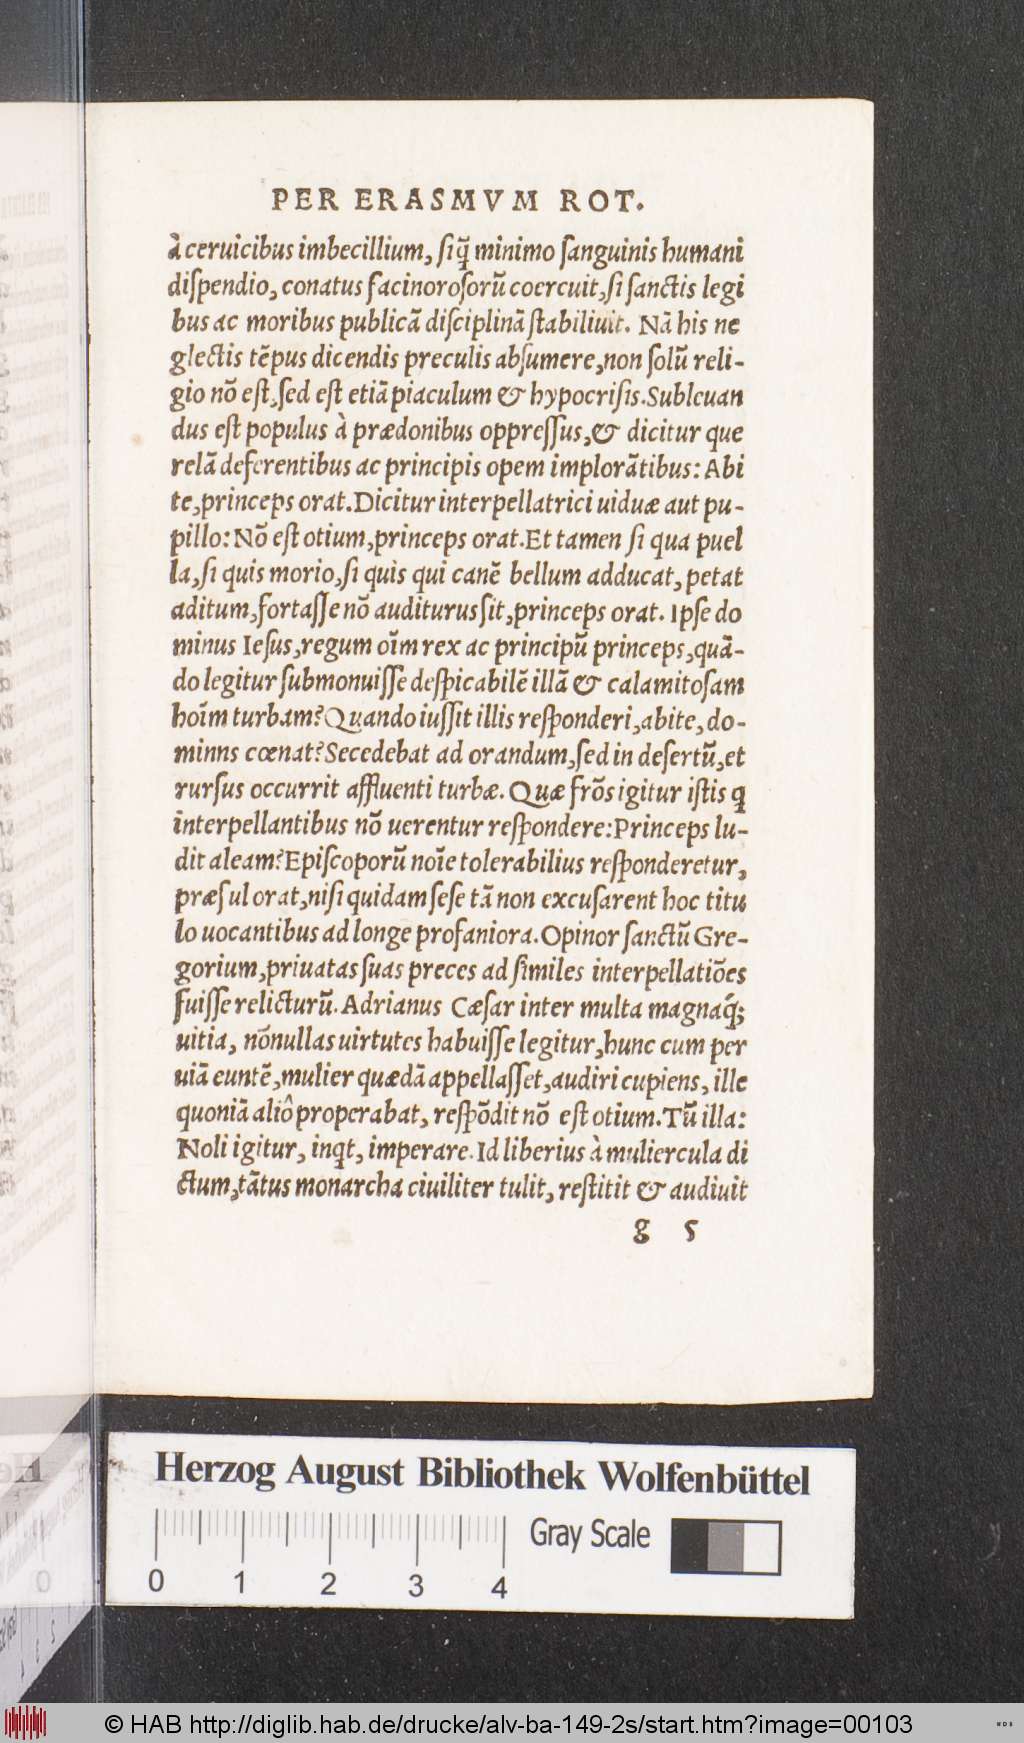 PER ERASMVM ROT.
à ceruicibus imbecillium, siq̃ minimo sanguinis humani
dispendio, conatus facinorosorũ coercuit, si sanctis legi
bus ac moribus publicã disciplinã stabiliuit. Nã his ne
glectis tẽpus dicendis preculis absumere, non solũ reli-
gio nõ est, sed est etiã piaculum & hypocrisis. Subleuan
dus est populus à prædonibus oppressus, & dicitur que
relã deferentibus ac principis opem implorãtibus: Abi
te, princeps orat. Dicitur interpellatrici uiduæ aut pu-
pillo: Nõ est otium, princeps orat. Et tamen si qua puel
la, si quis morio, si quis qui canẽ bellum adducat, petat
aditum, fortasse nõ auditurus sit, princeps orat. Ipse do
minus Iesus, regum oĩm rex ac principũ princeps, quã-
do legitur submonuisse despicabilẽ illã & calamitosam
hoĩm turbam? Quando iussit illis responderi, abite, do-
minns cœnat? Secedebat ad orandum, sed in desertũ, et
rursus occurrit affluenti turbæ. Quæ frõs igitur istis q̃
interpellantibus nõ uerentur respondere: Princeps lu-
dit aleam? Episcoporũ noĩe tolerabilius responderetur,
præsul orat, nisi quidam sese tã non excusarent hoc titu
lo uocantibus ad longe profaniora. Opinor sanctũ Gre-
gorium, priuatas suas preces ad similes interpellatiões
fuisse relicturũ. Adrianus Cæsar inter multa magnaq́;
uitia, nõnullas uirtutes habuisse legitur, hunc cum per
uiã euntẽ, mulier quædã appellasset, audiri cupiens, ille
quoniã aliô properabat, respõdit nõ est otium. Tũ illa:
Noli igitur, inq̃t, imperare. Id liberius à muliercula di
ctum, tãtus monarcha ciuiliter tulit, restitit & audiuit
g 5
Herzog August Bibliothek Wolfenbüttel
Gray Scale
0 1 2 3 4
© HAB http://diglib.hab.de/drucke/alv-ba-149-2s/start.htm?image=00103